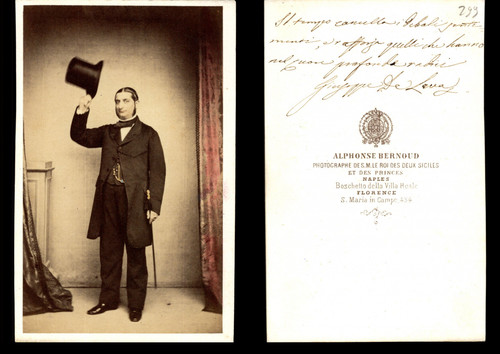 299
Il tempo cancella i deboli senti
menti, e rafforza quelli che hanno
nel cuore profonda radice
Giuseppe De
ALPHONSE BERNOUD
PHOTOGRAPHE DE S.M. LE ROI DES DEUX SICILES
ET DES PRINCES
NAPLES
Boschetto della Villa Reale
FLORENCE
S. Maria in Campo, 434